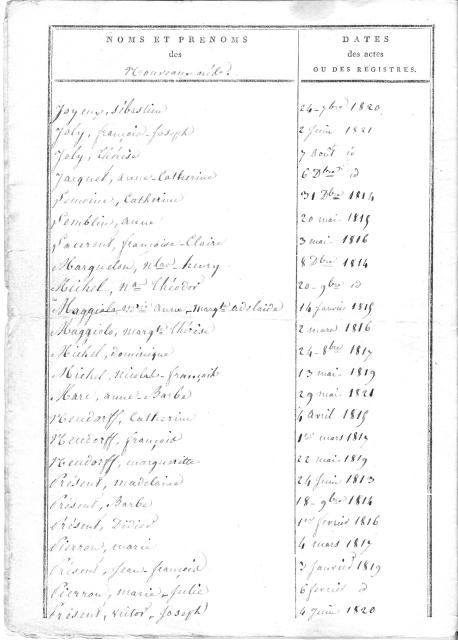 NOMS ET PRENOMS
des
Nouveaux nés.
DATES
des actes
OU DES REGISTRES.
Joyeux, Sébastien 24 - 9bre 1820
Joly, françois-Joseph 2 Juin 1821
Joly, thérèse 7 Août id
Jacquet, anne-Catherine 6 Dbre id
Lemoine, Catherine 31 Dbre 1814
Lemblin, anne 20 mai 1815
Laurent, françoise-Claire 3 mai 1816
Marquelon, Nlas-henry 8 Dbre 1814
Michel, Nas théodor 20 - 9bre id
Maggiolo-mrie anne-margte adelaïde 14 Janvier 1815
Maggiolo, margte thérèse 2 mars 1816
Michel, dominique 24 - 8bre 1817
Michel, nicolas-françois 13 mai 1819
Marc, anne-Barbe 29 mai 1821
Neudorff, Catherine 4 Avril 1815
Neudorff, françois 1er mars 1817
Neudorff, margueritte 22 mai 1819
Présent, madelaine 24 Juin 1813
Présent, Barbe 18 - 9bre 1814
Présent, Didier 1er février 1816
Pierron, marie 4 mars 1817
Présent, Jean-françois 3 Janvier 1819
Pierron, marie-Julie 6 février id
Présent, victor-Joseph 4 Juin 1820